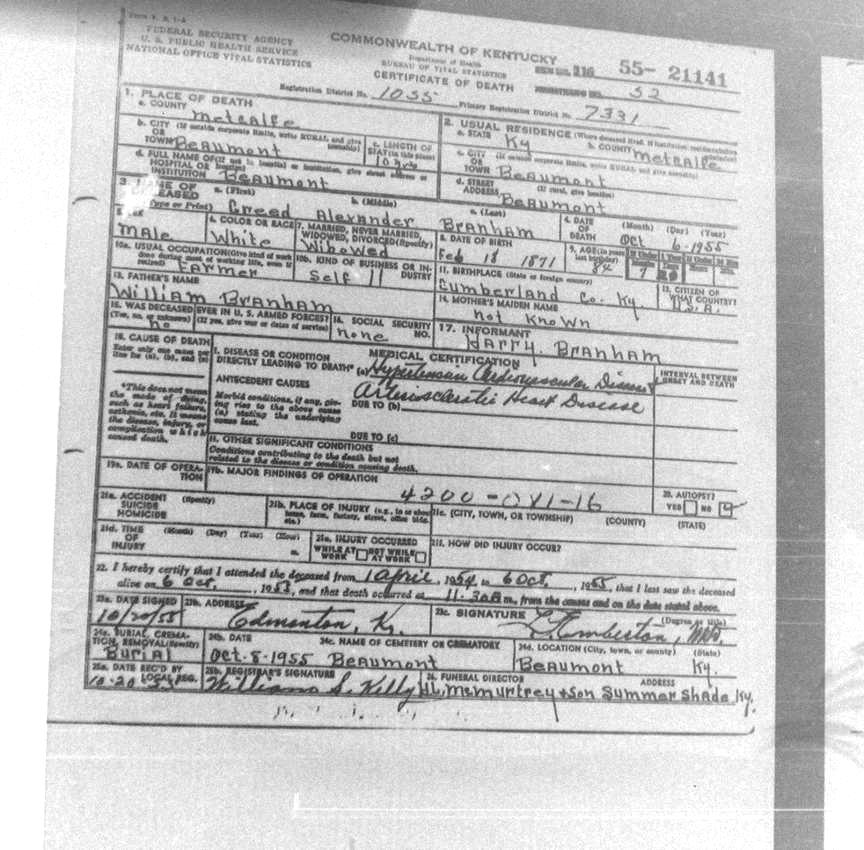 Form V. S. 1-A
FEDERAL SECURITY AGENCY
U. S. PUBLIC HEALTH SERVICE
NATIONAL OFFICE VITAL STATISTICS
COMMONWEALTH OF KENTUCKY
Department of Health
BUREAU OF VITAL STATISTICS
CERTIFICATE OF DEATH
116 55- 21141
52
Registration District No. 1055 Primary Registration District No. 7331
1. PLACE OF DEATH
a. COUNTY Metcalfe
2. USUAL RESIDENCE (Where deceased lived. If institution: residence before admission)
a. STATE Ky b. COUNTY Metcalfe
b. CITY (If outside corporate limits, write RURAL and give township)
OR
TOWN Beaumont
c. LENGTH OF STAY (in this place)
c. CITY (If outside corporate limits, write RURAL and give township)
OR
TOWN Beaumont
d. FULL NAME OF (If not in hospital or institution, give street address or location)
HOSPITAL OR
INSTITUTION Beaumont
d. STREET (If rural, give location)
ADDRESS Beaumont
3. NAME OF DECEASED
(Type or Print)
a. (First) b. (Middle) c. (Last)
Creed Alexander Branham
4. DATE OF DEATH (Month) (Day) (Year)
Oct 6-1955
5. SEX
Male
6. COLOR OR RACE
White
7. MARRIED, NEVER MARRIED, WIDOWED, DIVORCED (Specify)
Widowed
8. DATE OF BIRTH
Feb 18 1871
9. AGE (In years last birthday)
84
10a. USUAL OCCUPATION (Give kind of work done during most of working life, even if retired)
Farmer
10b. KIND OF BUSINESS OR INDUSTRY
Self
11. BIRTHPLACE (State or foreign country)
Cumberland Co. Ky.
12. CITIZEN OF WHAT COUNTRY?
U.S.A.
13. FATHER'S NAME
William Branham
14. MOTHER'S MAIDEN NAME
not Known
15. WAS DECEASED EVER IN U. S. ARMED FORCES?
(Yes, no, or unknown) (If yes, give war or dates of service)
no
16. SOCIAL SECURITY NO.
none
17. INFORMANT
Harry Branham
18. CAUSE OF DEATH
Enter only one cause per line for (a), (b), and (c)
MEDICAL CERTIFICATION
INTERVAL BETWEEN ONSET AND DEATH
I. DISEASE OR CONDITION
DIRECTLY LEADING TO DEATH* (a) Hypertension Cardiovascular Disease
*This does not mean the mode of dying, such as heart failure, asthenia, etc. It means the disease, injury, or complication which caused death.
ANTECEDENT CAUSES
Morbid conditions, if any, giving rise to the above cause (a) stating the underlying cause last.
DUE TO (b) Arteriosclerotic Heart Disease
DUE TO (c)
II. OTHER SIGNIFICANT CONDITIONS
Conditions contributing to the death but not related to the disease or condition causing death.
19a. DATE OF OPERATION
19b. MAJOR FINDINGS OF OPERATION
4200-
20. AUTOPSY?
YES NO
21a. ACCIDENT (Specify)
SUICIDE
HOMICIDE
21b. PLACE OF INJURY (e.g., in or about home, farm, factory, street, office bldg., etc.)
21c. (CITY, TOWN, OR TOWNSHIP) (COUNTY) (STATE)
21d. TIME OF INJURY (Month) (Day) (Year) (Hour)
m.
21e. INJURY OCCURRED
WHILE AT WORK NOT WHILE AT WORK
21f. HOW DID INJURY OCCUR?
22. I hereby certify that I attended the deceased from 1 April, 1954 to 6 Oct., 1955, that I last saw the deceased
alive on 6 Oct, and that death occurred at 11:30 m., from the causes and on the date stated above.
23a. DATE SIGNED
10/20/55
23b. ADDRESS
Edmonton, Ky.
23c. SIGNATURE (Degree or title)
Emberton, MD
24a. BURIAL, CREMATION, REMOVAL (Specify)
Burial
24b. DATE
Oct-8-1955
24c. NAME OF CEMETERY OR CREMATORY
Beaumont
24d. LOCATION (City, town, or county) (State)
Beaumont Ky.
25a. DATE REC'D BY LOCAL REG.
10-20-55
25b. REGISTRAR'S SIGNATURE
Williams S. Kelly
26. FUNERAL DIRECTOR ADDRESS
McMurtrey + Son Summer Shade Ky.